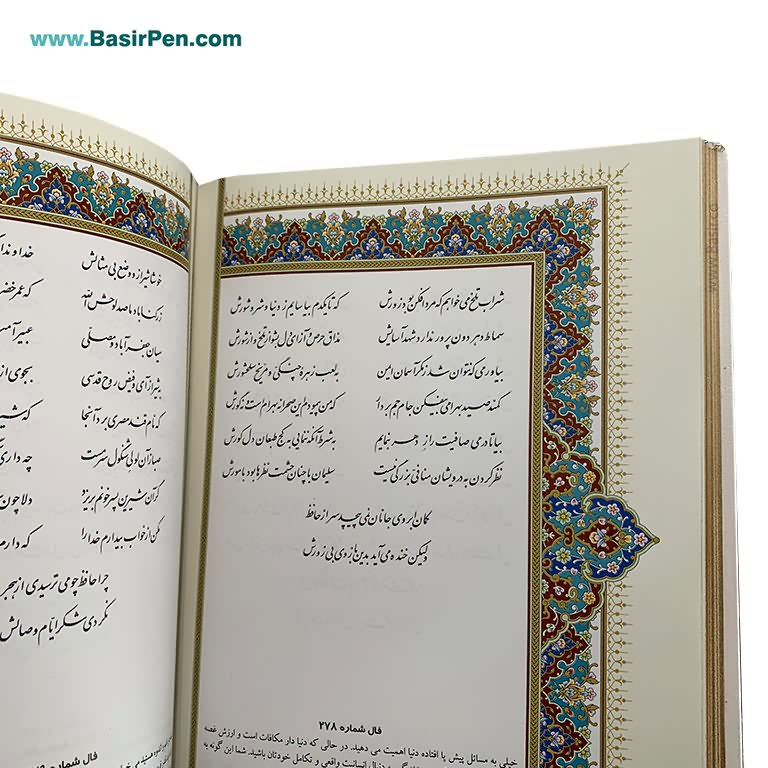 www.BasirPen.com
شراب تلخ می خواهم که مرد افکن بود زورش
که تا یکدم بیاسایم ز دنیا و شر و شورش
سماط دهر دون پرور ندارد شهد آسایش
مذاق حرص و آز ای دل بشو از تلخ و از شورش
بیاور می که نتوان شد ز مکر آسمان ایمن
بلعب زهره چنگی و مریخ سلحشورش
کمند صید بهرامی بیفکن جام جم بردار
که من پیمودم این صحرا نه بهرام است و نه گورش
بیا تا در می صافیت راز دهر بنمایم
به شرط آنکه ننمایی به کج طبعان دل کورش
نظر کردن به درویشان منافی بزرگی نیست
سلیمان با چنان حشمت نظرها بود با مورش
کمان ابروی جانان نمی پیچد سر از حافظ
ولیکن خنده می آید بدین بازوی بی زورش
فال شماره ۲۷۸
خیلی به مسائل پیش پا افتاده دنیا اهمیت می دهید. در حالی که دنیا دار مکافات است و ارزش غصه
دنبال انسانیت واقعی و تکامل خودتان باشید. شما این گونه به
خوشا شیراز و وضع بی مثالش
ز رکناباد ما صد لوحش الله
که عمر خضر
میان جعفرآباد و مصلی
عبیر آمیز
بشیراز آی و فیض روح قدسی
بجوی از
که نام قند مصری برد آنجا
که شیر
صبا زان لولی شنگول سرمست
چه داری
گر آن شیرین پسر خونم بریزد
دلا چون
مکن از خواب بیدارم خدا را
که دارم
چرا حافظ چو می ترسیدی از هجر
نکردی شکر ایام وصالش
فال شماره